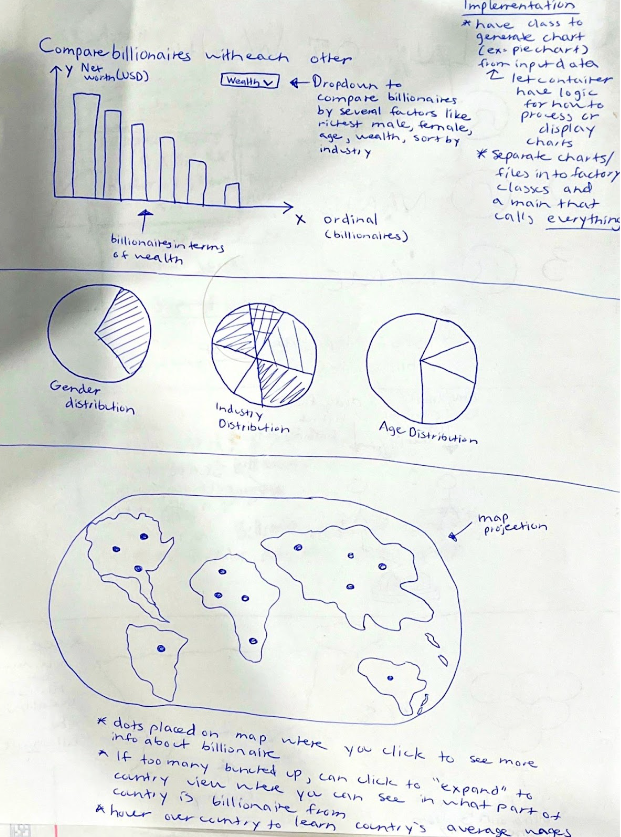 Implementation
* have class to
generate chart
(ex: pie chart)
from input data
↑ let container
have logic
for how to
process or
display
charts
* separate charts/
files in to factory
classes and
a main that
calls everything
Compare billionaires with each other
y Net
worth (USD)
Wealth ∨
← Dropdown to
compare billionaires
by several factors like
richest male, female,
age, wealth, sort by
industry
x ordinal
(billionaires)
billionaires in terms
of wealth
Gender
distribution
Industry
Distribution
Age Distribution
map
projection
* dots placed on map where you click to see more
info about billionaire
* If too many bunched up, can click to "expand" to
country view where you can see in what part of
country is billionaire from
* hover over country to learn country's average wages